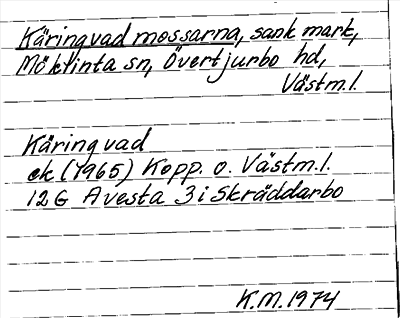 Käringvad mossarna, sank mark,
Möklinta sn, Övertjurbo hd,
Västm.l.
Käringvad
ek (1965) Kopp. o. Västm.l.
12 G Avesta 3 i Skräddarbo
K.M. 1974